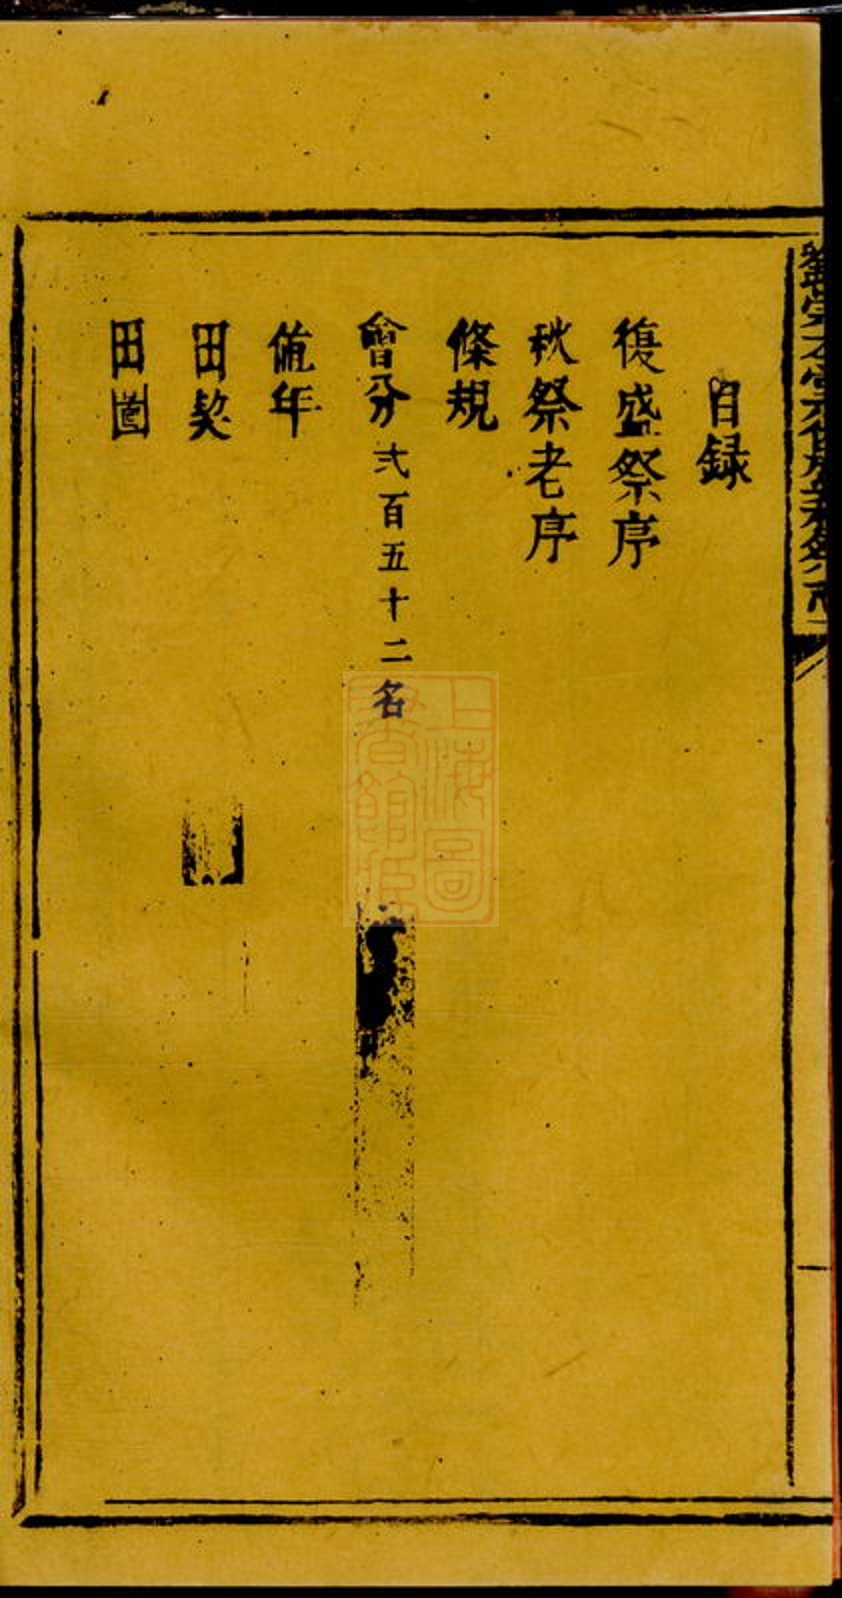 目録
復盛祭序
秋祭老序
條規
會分弍百五十二名
值年
田契
田啚
上海圖書館藏